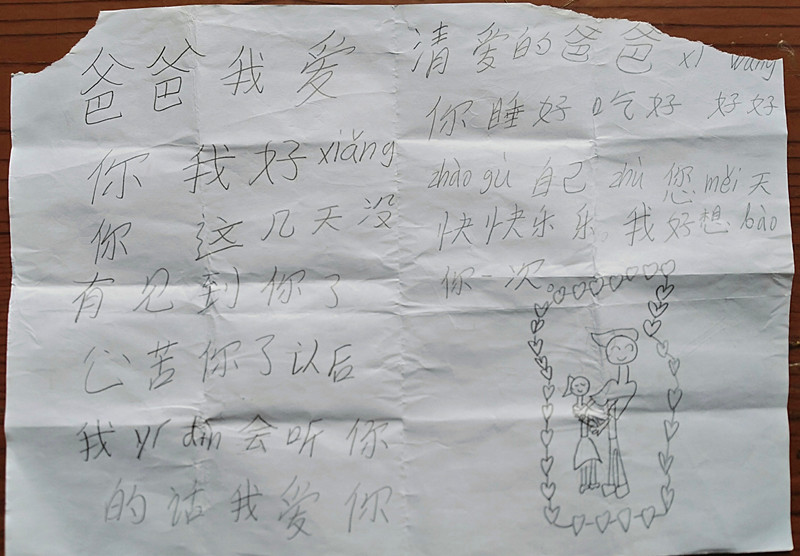 爸爸我爱
你我好xiǎng
你这几天没
有见到你了
心苦你了认后
我yí dìn会听你
的话我爱你
清爱的爸爸xī wàng
你睡好吃好 好好
zhào gù自己zhù您měi天
快快乐乐,我好想bào
你一次。